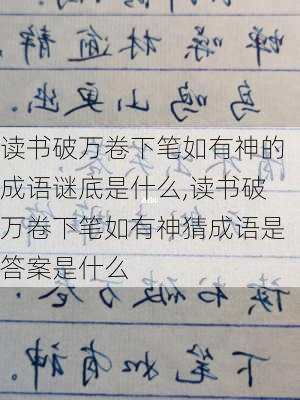 蝉噪林逾静
鸟鸣山更幽.
读书破万卷下笔如有神的
成语谜底是什么,读书破
万卷下笔如有神猜成语是
答案是什么
读书破万卷.
下笔如有神。